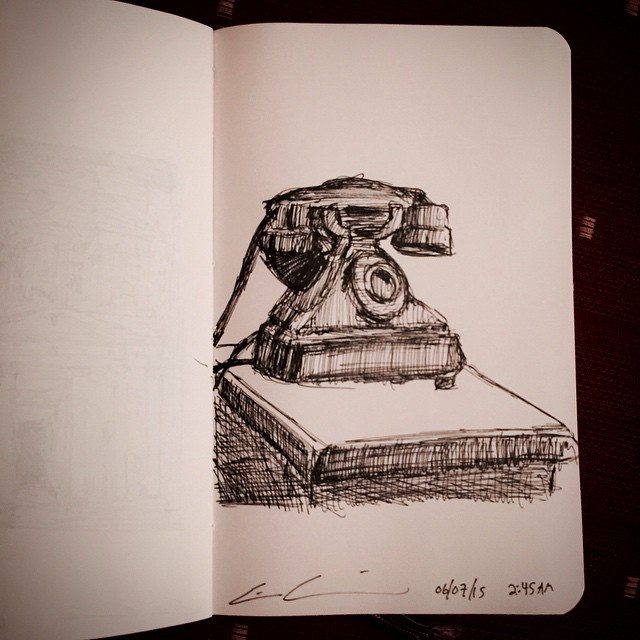 06/07/15 2:45AM